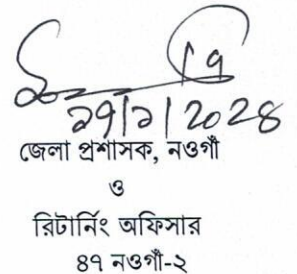 ১৭/১/২০২৪
জেলা প্রশাসক, নওগাঁ
ও
রিটার্নিং অফিসার
৪৭ নওগাঁ-২